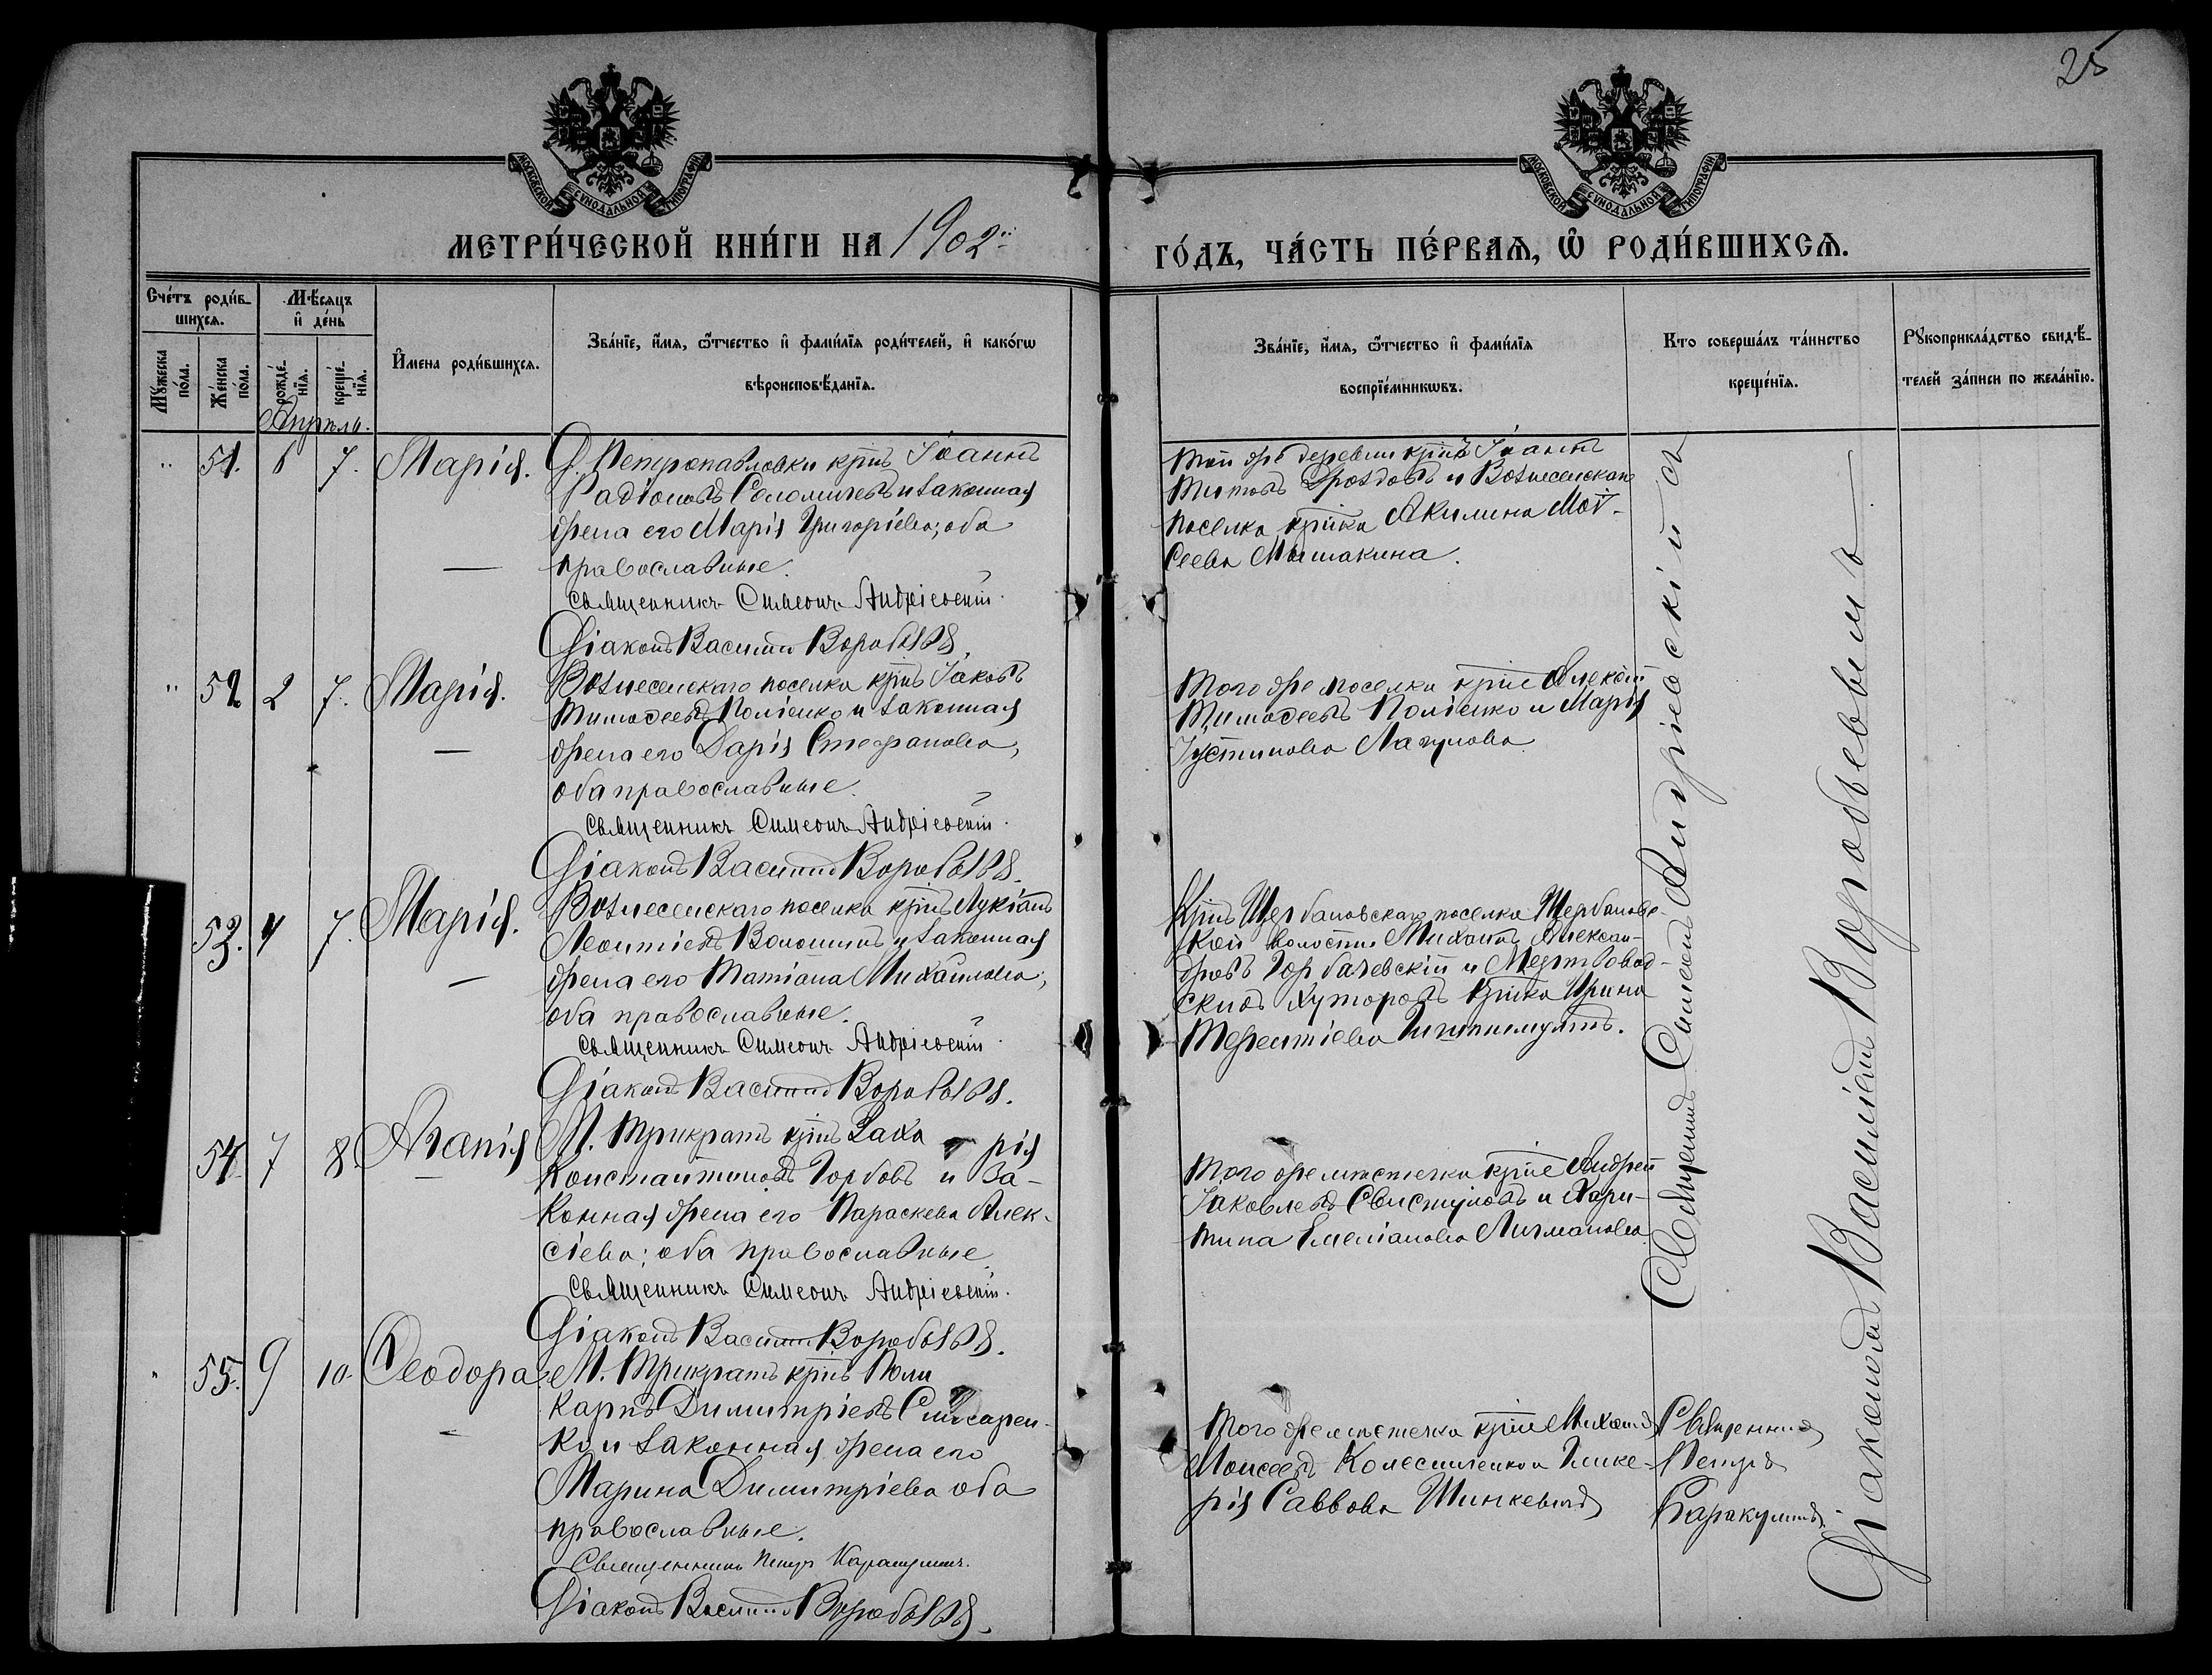 25
МОСКОВСКОЙ СѴНОДАЛЬНОЙ ТИПОГРАФІИ
МОСКОВСКОЙ СѴНОДАЛЬНОЙ ТИПОГРАФІИ
МЕТРИ́ЧЕСКОЙ КНИ́ГИ НА 1902й
ГО́ДЪ, ЧА́СТЬ ПЕ́РВАѦ, Ѡ҆ РОДИ́ВШИХСѦ.
Сче́тъ роди́в-
шихсѧ.
Мꙋ́жеска по́ла.
Же́нска по́ла.
Мѣ́сѧцъ
и҆ де́нь
рожде́-
нїѧ.
креще́-
нїѧ.
И҆мена роди́вшихсѧ.
Зва́нїе, и҆́мѧ, ѻ҆́тчество и҆ фами́лїѧ роди́телей, и҆ како́гѡ
вѣроисповѣ́данїѧ.
Зва́нїе, и҆́мѧ, ѻ҆́тчество и҆ фами́лїѧ
воспрїе́мникѡвъ.
Кто соверша́лъ та́инство
креще́нїѧ.
Рꙋкоприкла́дство свидѣ́-
телей за́писи по жела́нїю.
Апрѣль.
" 51. 6 7. Марія. Д. Петропавловки кр-нъ Іоаннъ
Радіоновъ Соломичевъ и законная
жена его Марія Григоріева; оба
православные.
Священникъ Симеонъ Андріевскій.
Діаконъ Василій Воробьевъ
Той же деревни кр-нъ Іоаннъ
Титовъ Дроздовъ и Вознесенскаго
поселка кр-нка Акилина Мої-
сеева Мышакина.
" 52 2 7. Марія. Вознесенскаго поселка кр-нъ Іаковъ
Тимоѳеевъ Поліенко и законная
жена его Дарія Стефанова,
оба православные.
Священникъ Симеонъ Андріевскій.
Діаконъ Василій Воробьевъ.
Того же поселка кр-не Алексій
Тимоѳеевъ Поліенко и Марія
Іустинова Лагунова
53. 4 7. Марія. Вознесенскаго поселка кр-нъ Лукіанъ
Леонтіевъ Волошинъ и законная
жена его Татіана Михайлова;
оба православные.
Священникъ Симеонъ Андріевскій.
Діаконъ Василій Воробьевъ.
Кр-нъ Щербановскаго поселка Щербановс-
кой волости Михаилъ Алексан-
дровъ Горбачевскій и Мертвовод-
скихъ хуторовъ кр-нка Ирина
Терентіева
54. 7 8. Агапія М. Трикратъ кр-нъ Заха рія
Константиновъ Горбовъ и за-
конная жена его Параскева Алек-
сіева; оба православные.
Священникъ Симеонъ Андріевскій.
Діаконъ Василій Воробьевъ.
Того же мѣстечка кр-не Андрей
Іаковлевъ Свистуновъ и Хари-
тина Емеліанова Личманова
" 55. 9 10. Ѳеодора. М. Трикратъ кр-нъ Поли
карпъ Димитріевъ Слюсарен-
ко и законная жена его
Марина Димитріева оба
православные.
Священникъ Петръ Каракулинъ.
Діаконъ Василій Воробьевъ.
Того же мѣстечка кр-не Михаилъ
Моисеевъ Колесниченко и Глике-
рія Саввова Шинкевичъ
Священникъ
Петръ
Каракулинъ.
Священникъ Симеонъ Андріевскій съ
Діакономъ Василіемъ Воробьевымъ